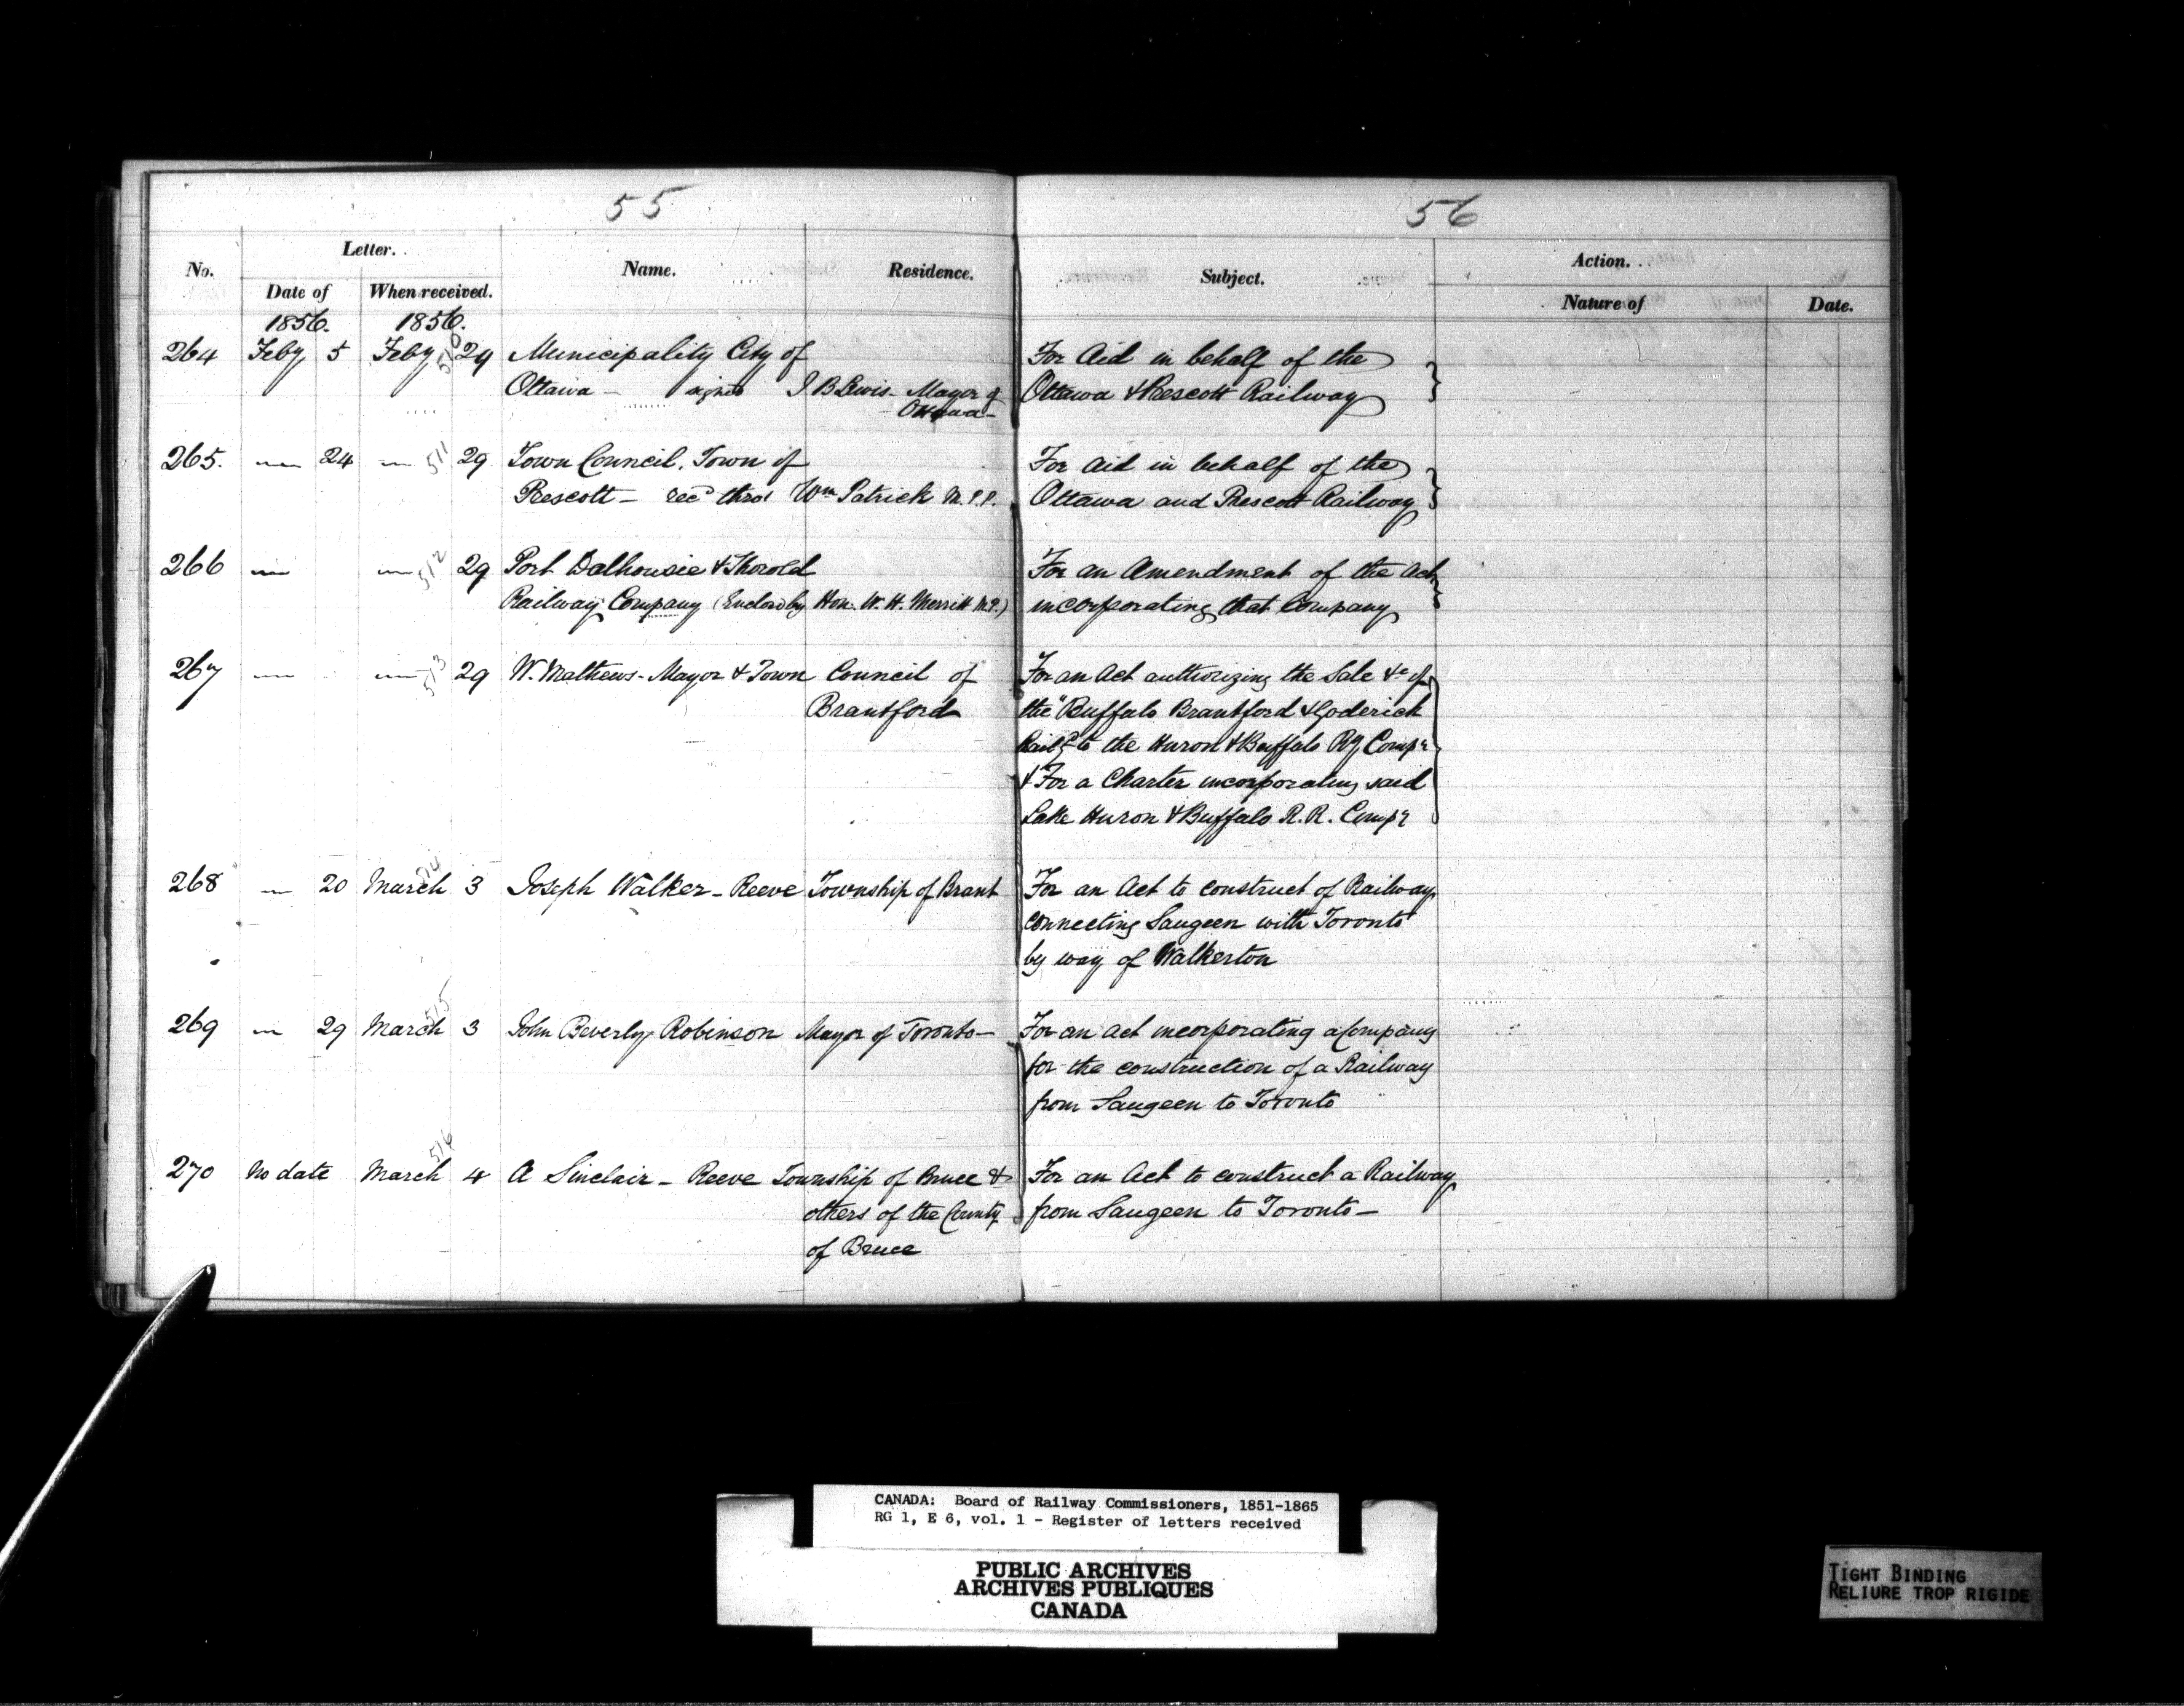 55
56
No. Letter. Name. Residence. Subject. Action.
Date of When received. Nature of Date.
1856. 1856.
264 Feby 5 Feby 510 29 Municipality City of For Aid in behalf of the
Ottawa — signed J B Lewis - Mayor of Ottawa & Prescott Railway
Ottawa —
265. — 24 — 511 29 Town Council, Town of For Aid in behalf of the
Prescott — recd thro' Wm Patrick M.P.P. Ottawa and Prescott Railway
266 — — 512 29 Port Dalhousie & Thorold For an Amendment of the Act
Railway Company (Enclosd by Hon. W. H. Merritt M.P.) incorporating that Company
267 — — 513 29 W. Mathews - Mayor & Town Council of For an Act authorizing the Sale &c of
Brantford the "Buffalo Brantford & Goderich
Raily to the Huron & Buffalo Ry Compy
& For a Charter incorporating said
Lake Huron & Buffalo R.R. Compy
268 — 20 March 514 3 Joseph Walker — Reeve Township of Brant For an Act to construct of Railway
connecting Saugeen with Toronto
by way of Walkerton
269 — 29 March 515 3 John Beverly Robinson Mayor of Toronto — For an act incorporating a Company
for the construction of a Railway
from Saugeen to Toronto
270 No date March 516 4 A Sinclair — Reeve Township of Bruce & For an Act to construct a Railway
others of the County from Saugeen to Toronto —
of Bruce
CANADA: Board of Railway Commissioners, 1851-1865
RG 1, E 6, vol. 1 - Register of letters received
PUBLIC ARCHIVES
ARCHIVES PUBLIQUES
CANADA
TIGHT BINDING
RELIURE TROP RIGIDE